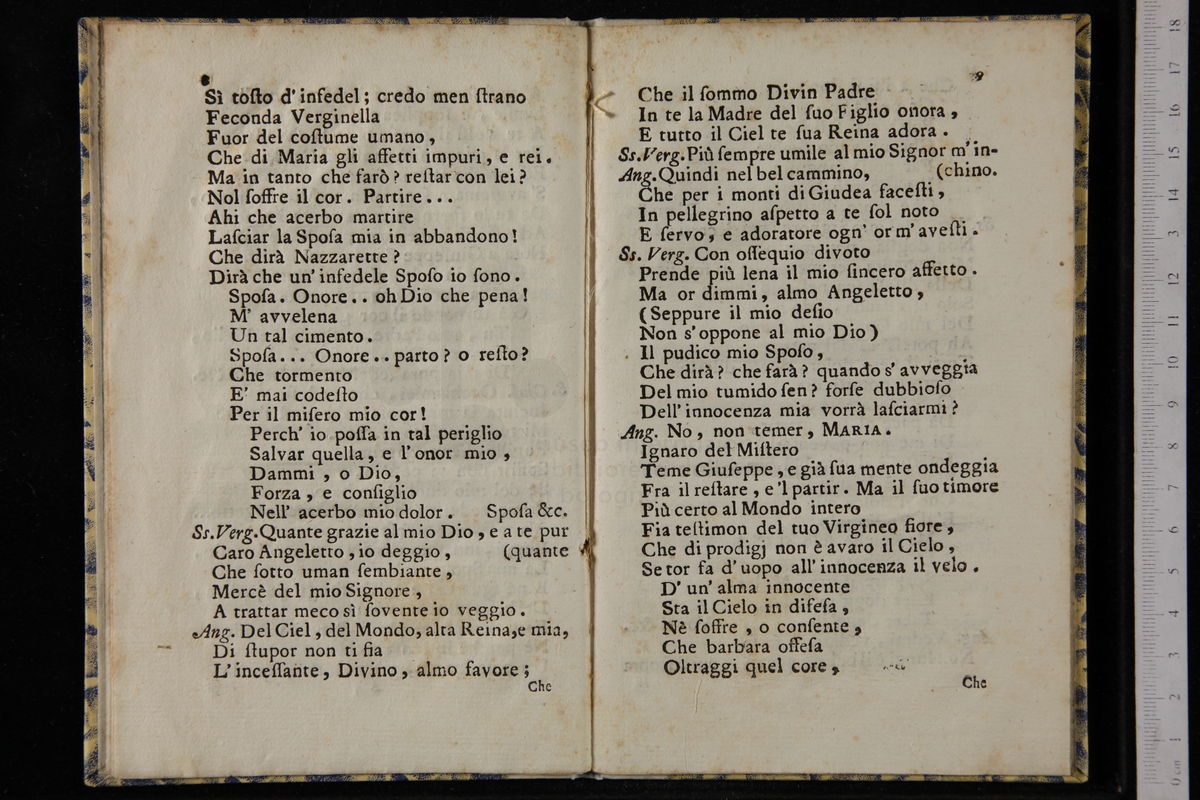 8
Sì toſto d' infedel ; credo men ſtrano
Feconda Verginella
Fuor del coſtume umano ,
Che di Maria gli affetti impuri , e rei .
Ma in tanto che farò ? reſtar con lei ?
Nol ſoffre il cor . Partire . . .
Ahi che acerbo martire
Laſciar la Spoſa mia in abbandono !
Che dirà Nazzarette ?
Dirà che un' infedele Spoſo io ſono .
Spoſa . Onore . . oh Dio che pena !
M' avvelena
Un tal cimento .
Spoſa . . . Onore . . parto ? o reſto ?
Che tormento
E' mai codeſto
Per il miſero mio cor !
Perch' io poſſa in tal periglio
Salvar quella , e l' onor mio ,
Dammi , o Dio ,
Forza , e conſiglio
Nell' acerbo mio dolor . Spoſa &c.
Ss. Verg. Quante grazie al mio Dio , e a te pur
Caro Angeletto , io deggio , (quante
Che ſotto uman ſembiante ,
Mercè del mio Signore ,
A trattar meco sì ſovente io veggio .
Ang. Del Ciel , del Mondo , alta Reina , e mia ,
Di ſtupor non ti fia
L' inceſſante , Divino , almo favore ;
Che
9
Che il ſommo Divin Padre
In te la Madre del ſuo Figlio onora ,
E tutto il Ciel te ſua Reina adora .
Ss. Verg. Più ſempre umile al mio Signor m' in-
Ang. Quindi nel bel cammino , (chino.
Che per i monti di Giudea faceſti ,
In pellegrino aſpetto a te ſol noto
E ſervo , e adoratore ogn' or m' aveſti .
Ss. Verg. Con oſſequio divoto
Prende più lena il mio ſincero affetto .
Ma or dimmi , almo Angeletto ,
( Seppure il mio deſio
Non s' oppone al mio Dio )
Il pudico mio Spoſo ,
Che dirà ? che farà ? quando s' avveggia
Del mio tumido ſen ? forſe dubbioſo
Dell' innocenza mia vorrà laſciarmi ?
Ang. No , non temer , MARIA .
Ignaro del Miſtero
Teme Giuſeppe , e già ſua mente ondeggia
Fra il reſtare , e 'l partir . Ma il ſuo timore
Più certo al Mondo intero
Fia teſtimon del tuo Virgineo fiore ,
Che di prodigj non è avaro il Cielo ,
Se tor fa d' uopo all' innocenza il velo .
D' un' alma innocente
Sta il Cielo in difeſa ,
Nè ſoffre , o conſente ,
Che barbara offeſa
Oltraggi quel core ,
Che
0 cm 1 2 3 4 5 6 7 8 9 10 11 12 13 14 15 16 17 18